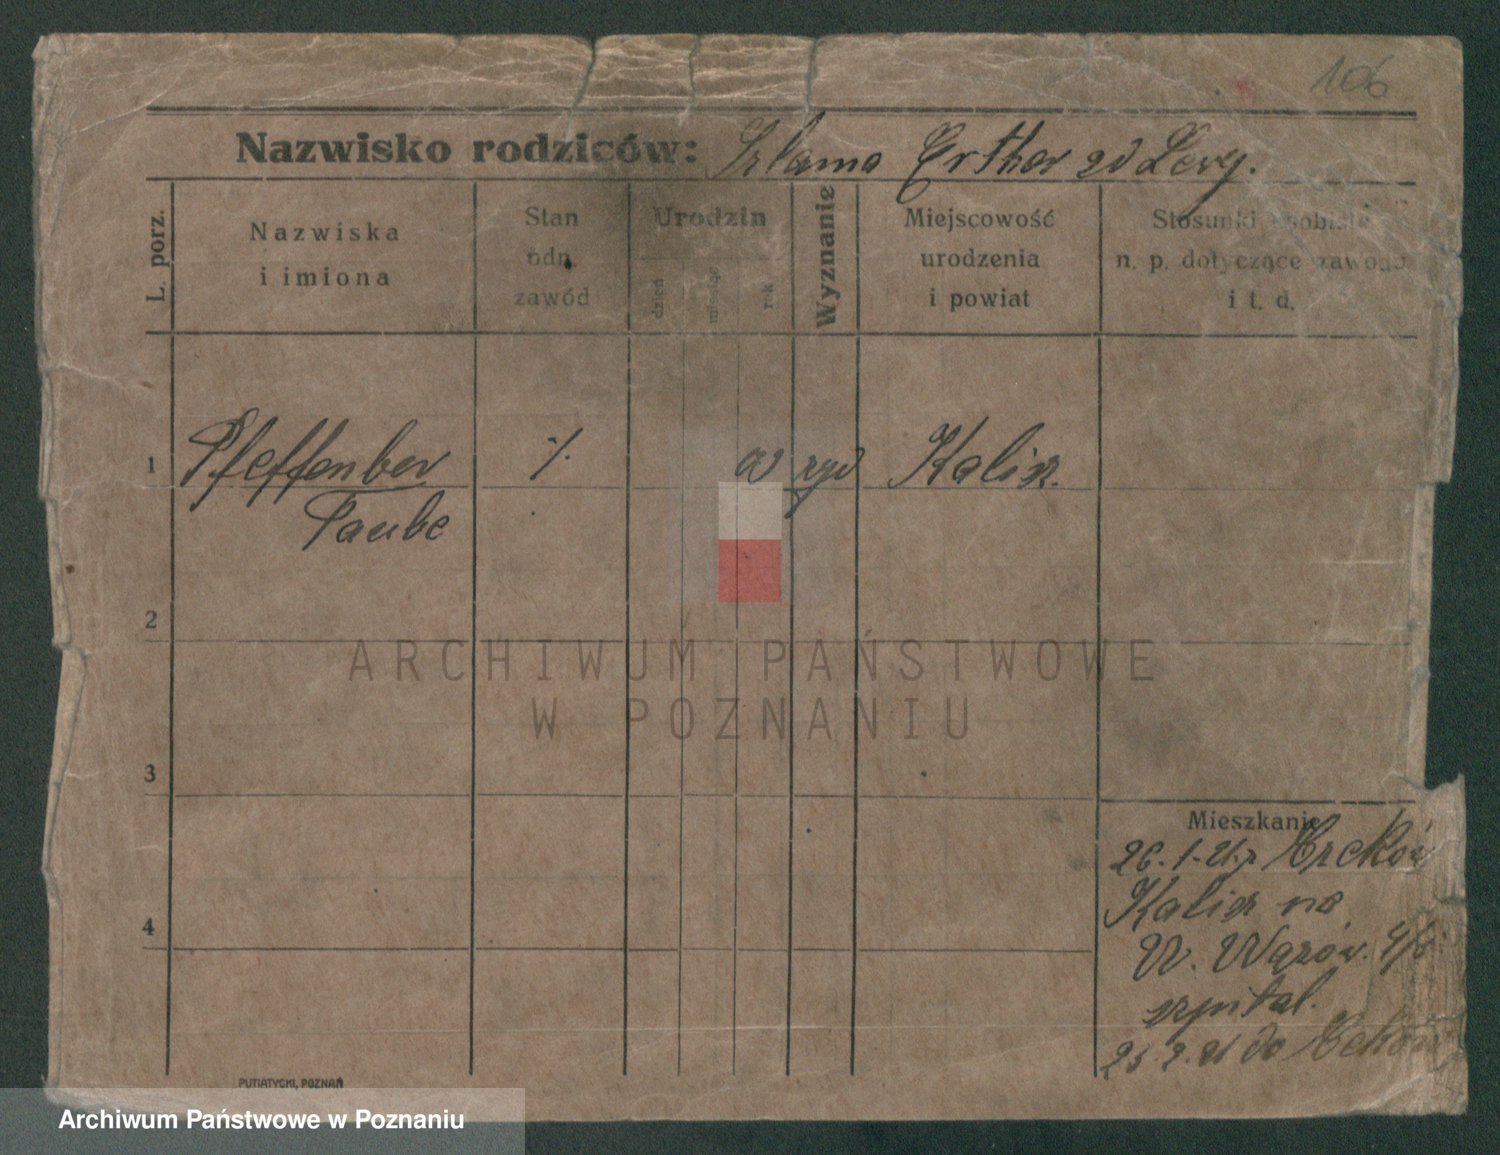 106
Nazwisko rodziców: Szlama Esther zd Levy.
L. porz.
Nazwiska
i imiona
Stan
odn.
zawód
Urodzin
dzień
miesiąc
rok
Wyznanie
Miejscowość
urodzenia
i powiat
Stosunki osobiste
n. p. dotyczące zawodu
i t. d.
1 Pfeffenber Kalisz.
Taube
2
ARCHIWUM PAŃSTWOWE
W POZNANIU
3
Mieszkanie
26.1.21.r
Kalisz na
4
W. 4/5
szpital.
25.2.21 do
PUTIATYCKI, POZNAŃ
Archiwum Państwowe w Poznaniu